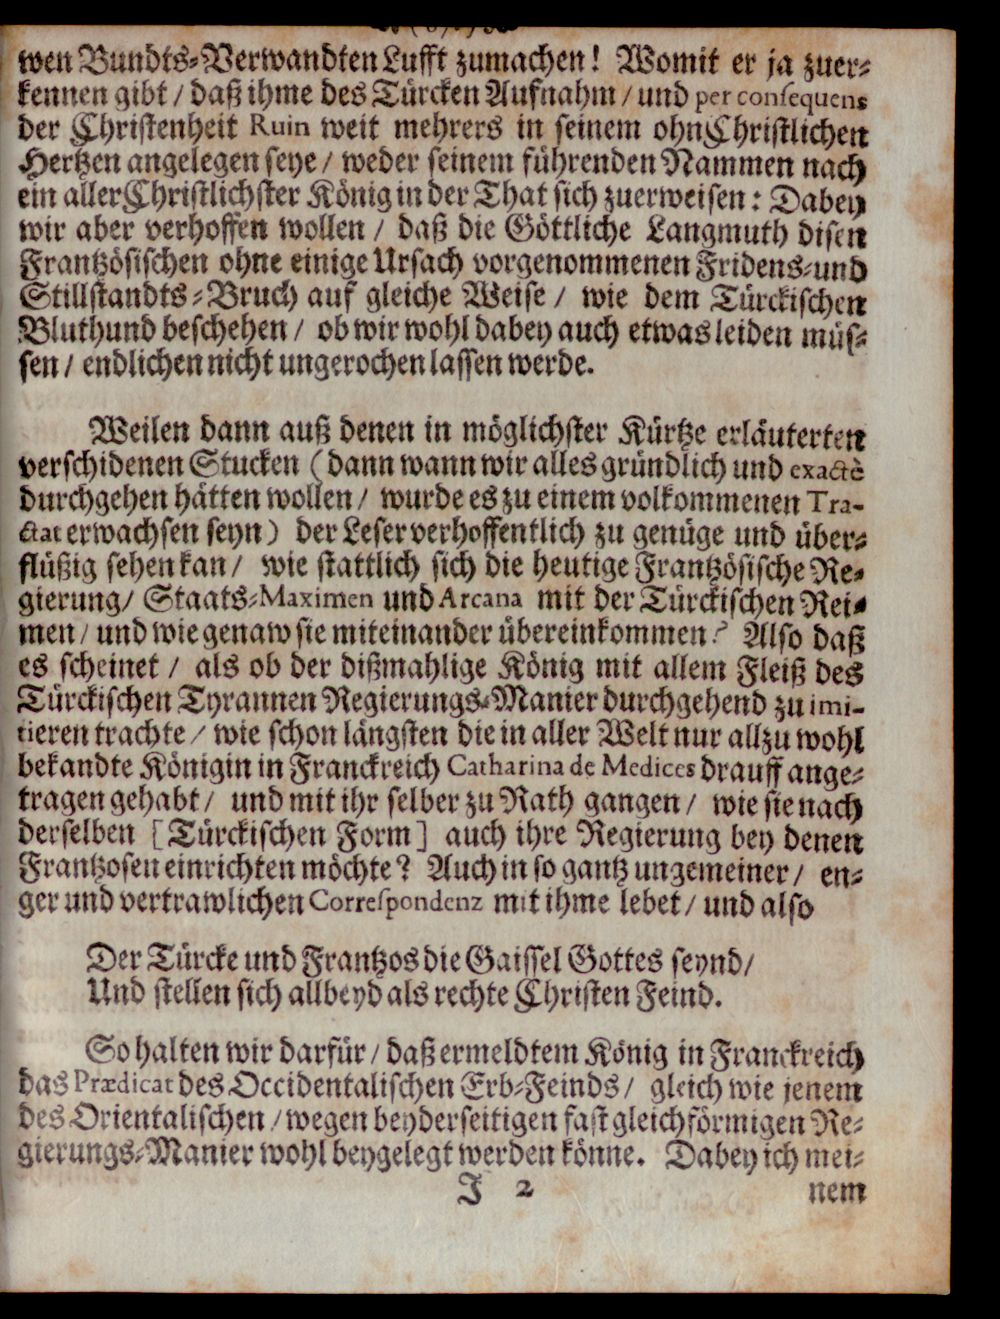 wen Bundts-Verwandten Lufft zumachen! Womit er ja zuer-
kennen gibt / daß ihme des Türcken Aufnahm / und per consequens
der Christenheit Ruin weit mehrers in seinem ohnChristlichen
Hertzen angelegen seye / weder seinem führenden Nammen nach
ein allerChristlichster König in der That sich zuerweisen: Dabey
wir aber verhoffen wollen / daß die Göttliche Langmuth disen
Frantzösischen ohne einige Ursach vorgenommenen Fridens-und
Stillstandts-Bruch auf gleiche Weise / wie dem Türckischen
Bluthund beschehen / ob wir wohl dabey auch etwas leiden müs-
sen / endlichen nicht ungerochen lassen werde.
Weilen dann auß denen in möglichster Kürtze erläuterten
verschidenen Stucken (dann wann wir alles gründlich und exactè
durchgehen hätten wollen / wurde es zu einem volkommenen Tra-
ctat erwachsen seyn) der Leser verhoffentlich zu genüge und über-
flüßig sehen kan / wie stattlich sich die heutige Frantzösische Re-
gierung / Staats-Maximen und Arcana mit der Türckischen Rei-
men / und wie genaw sie miteinander übereinkommen? Also daß
es scheinet / als ob der dißmahlige König mit allem Fleiß des
Türckischen Tyrannen Regierungs-Manier durchgehend zu imi-
tieren trachte / wie schon längsten die in aller Welt nur allzu wohl
bekandte Königin in Franckreich Catharina de Medices drauff ange-
tragen gehabt / und mit ihr selber zu Rath gangen / wie sie nach
derselben [Türckischen Form] auch ihre Regierung bey denen
Frantzosen einrichten möchte? Auch in so gantz ungemeiner / en-
ger und vertrawlichen Correspondenz mit ihme lebet / und also
Der Türcke und Frantzos die Gaissel Gottes seynd /
Und stellen sich allbeyd als rechte Christen Feind.
So halten wir darfür / daß ermeldtem König in Franckreich
das Prædicat des Occidentalischen Erb-Feinds / gleich wie jenem
des Orientalischen / wegen beyderseitigen fast gleichförmigen Re-
gierungs-Manier wohl beygelegt werden könne. Dabey ich mei-
J 2 nem